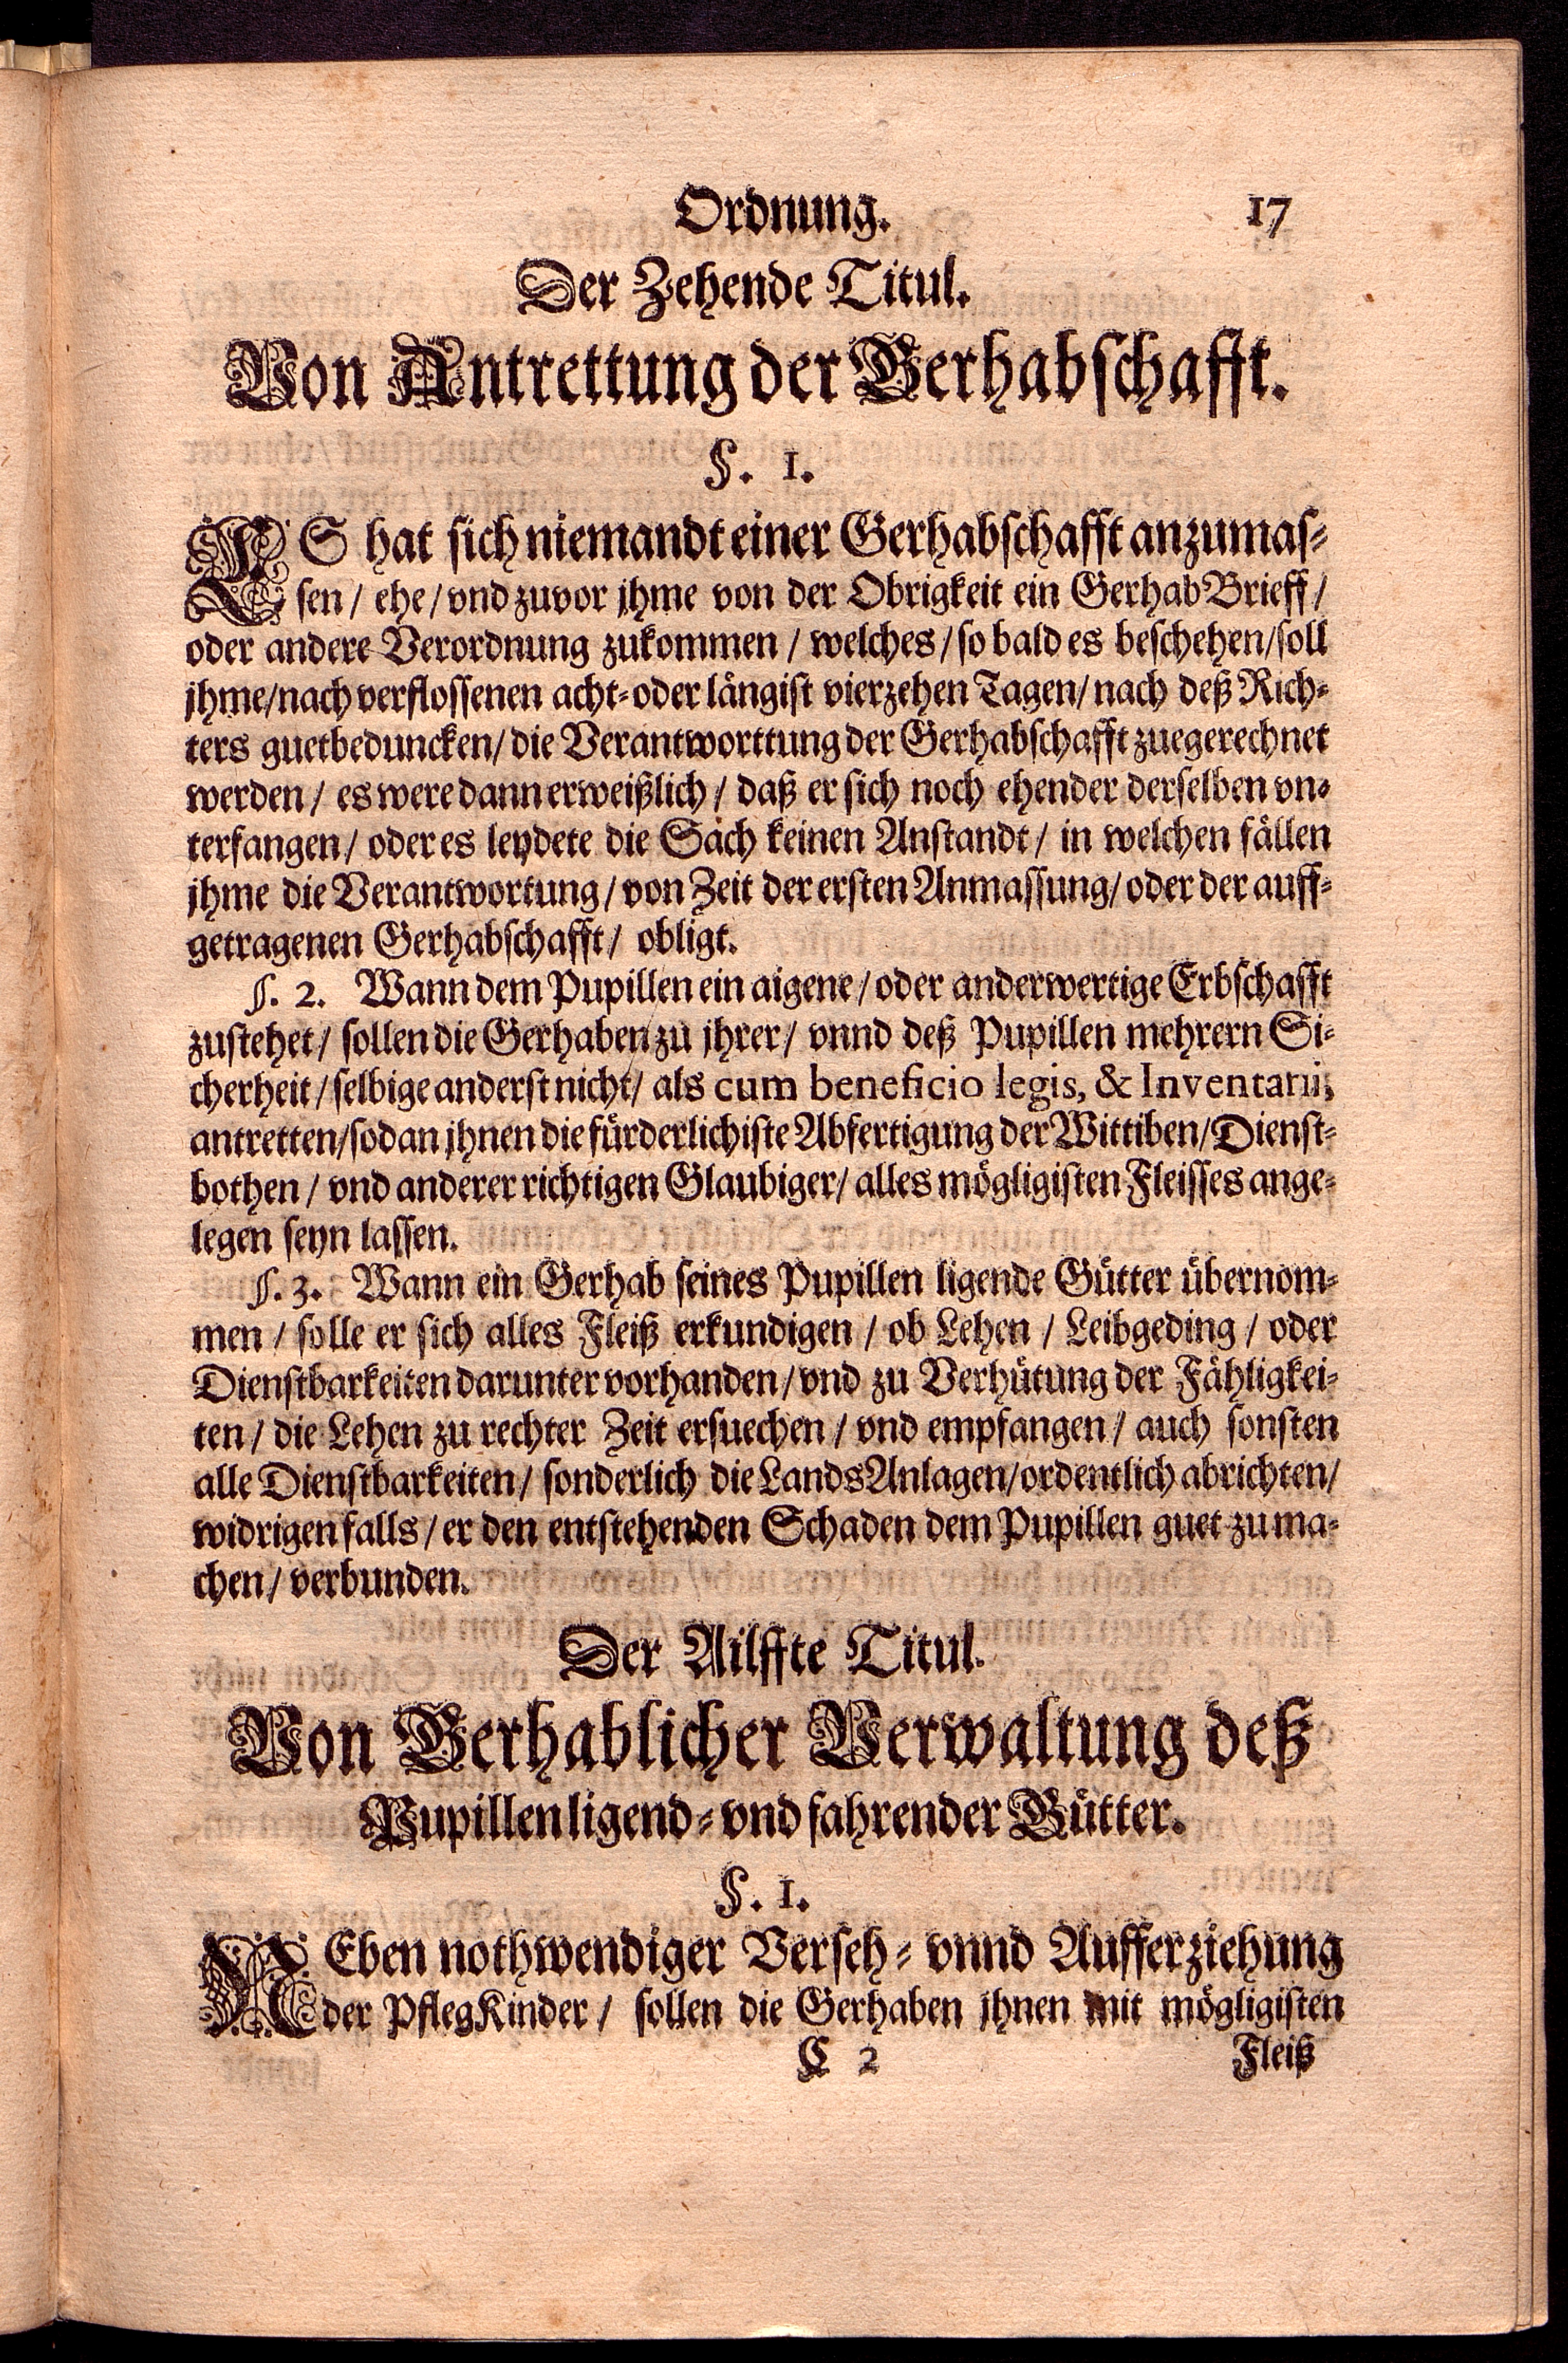 Ordnung. 17
Der Zehende Titul.
Von Antrettung der Gerhabschafft.
§. 1.
ES hat sich niemandt einer Gerhabschafft anzumas-
sen / ehe / vnd zuvor jhme von der Obrigkeit ein Gerhab Brieff /
oder andere Verordnung zukommen / welches / so bald es beschehen / soll
jhme / nach verflossenen acht- oder längist vierzehen Tagen / nach deß Rich-
ters guetbeduncken / die Verantworttung der Gerhabschafft zuegerechnet
werden / es were dann erweißlich / daß er sich noch ehender derselben vn-
terfangen / oder es leydete die Sach keinen Anstandt / in welchen fällen
jhme die Verantwortung / von Zeit der ersten Anmassung / oder der auff-
getragenen Gerhabschafft / obligt.
§. 2. Wann dem Pupillen ein aigene / oder anderwertige Erbschafft
zustehet / sollen die Gerhaben zu jhrer / vnnd deß Pupillen mehrern Si-
cherheit / selbige anderst nicht / als cum beneficio legis, & Inventarii,
antretten / sodan jhnen die fürderlichiste Abfertigung der Wittiben / Dienst-
bothen / vnd anderer richtigen Glaubiger / alles mögligisten Fleisses ange-
legen seyn lassen.
§. 3. Wann ein Gerhab seines Pupillen ligende Gütter übernom-
men / solle er sich alles Fleiß erkundigen / ob Lehen / Leibgeding / oder
Dienstbarkeiten darunter vorhanden / vnd zu Verhütung der Fähligkei-
ten / die Lehen zu rechter Zeit ersuechen / vnd empfangen / auch sonsten
alle Dienstbarkeiten / sonderlich die Lands Anlagen / ordentlich abrichten /
widrigen falls / er den entstehenden Schaden dem Pupillen guet zu ma-
chen / verbunden.
Der Ailffte Titul.
Von Gerhablicher Verwaltung deß
Pupillen ligend- vnd fahrender Gütter.
§. 1.
NEben nothwendiger Verseh- vnnd Aufferziehung
der PflegKinder / sollen die Gerhaben jhnen mit mögligisten
C 2 Fleiß